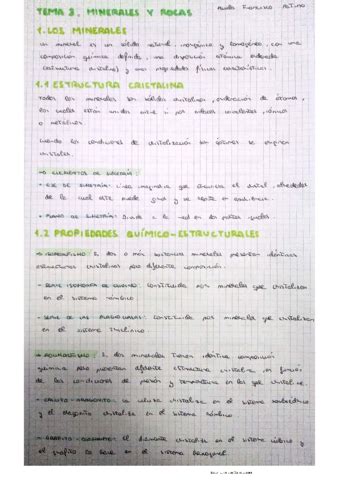 TEMA 3. MINERALES Y ROCAS
1. LOS MINERALES
Un mineral es un sólido natural, inorgánico y homogéneo, con una
composición química definida, una disposición atómica ordenada
(estructura cristalina) y unas propiedades físicas características
1.1 ESTRUCTURA CRISTALINA
Todos los minerales son sólidos cristalinos, ordenación de átomos,
los cuales están unidos entre sí por enlaces covalentes, iónicos
o metálicos
Cuando las condiciones de cristalización son óptimas se
cristales.
→ ELEMENTOS DE SIMETRÍA:
- EJE DE SIMETRÍA: Línea imaginaria que atraviesa el cristal, alrededor
de la cual este puede girar y se repite
- PLANO DE SIMETRÍA: Divide a la red en dos partes iguales
1.2 PROPIEDADES QUÍMICO-ESTRUCTURALES
→ ISOMORFISMO: 2 o más minerales presentan idénticas
estructuras cristalinas pero diferente composición.
- SERIE ISOMORFA DE OLIVINO: Constituida por minerales que cristalizan
en el sistema rómbico
- SERIE DE LAS PLAGIOCLASAS: Constituida por minerales que cristalizan
en el sistema triclínico
→ POLIMORFISMO: 2 dos minerales tienen idéntica composición
química pero presentan diferente estructura cristalina en función
de las condiciones de presión y temperatura en las que cristalice.
- CALCITO-ARAGONITO: La calcita cristaliza en el sistema
y el aragonito cristaliza en el sistema rómbico
- GRAFITO-DIAMANTE: El diamante cristaliza en el sistema cúbico y
el grafito lo hace en el sistema hexagonal